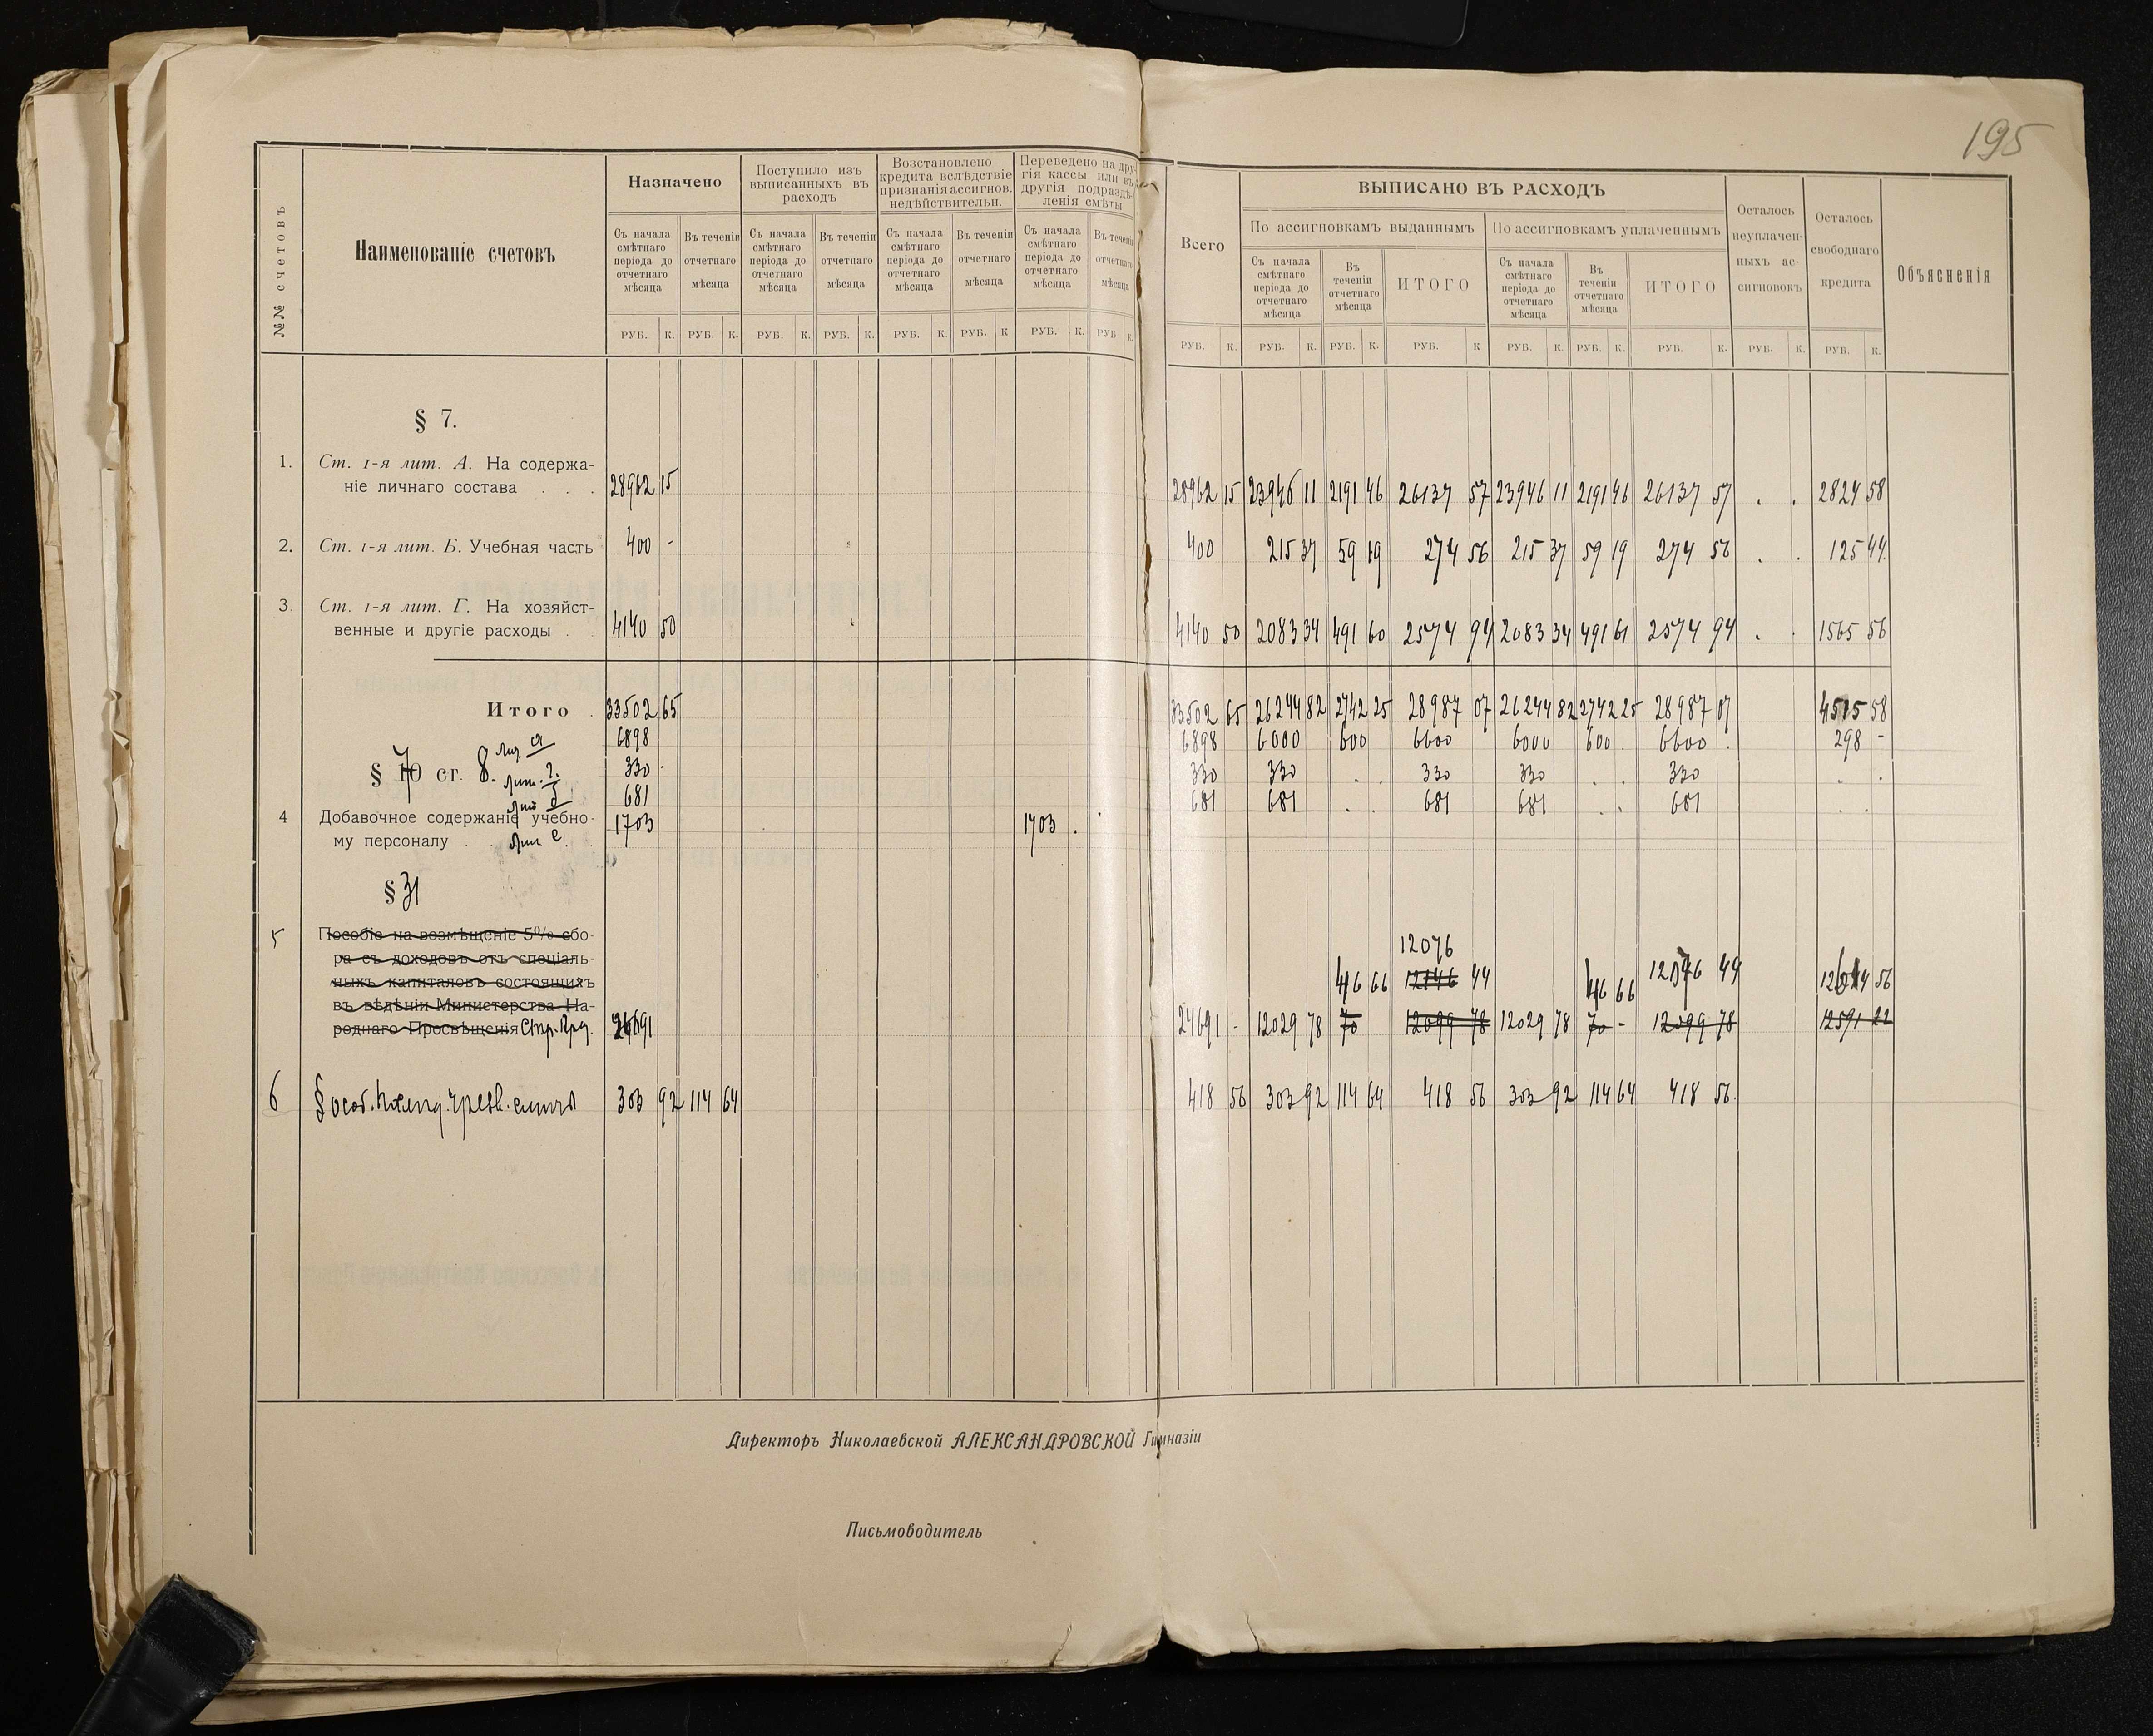 195
№№ счетовъ
Наименованіе счетовъ
Назначено
Поступило изъ
выписанныхъ въ
расходъ
Возстановлено
кредита вслѣдствіе
признанія ассигнов.
недѣйствительн.
Переведено на дру-
гія кассы или въ
другія подраздѣ-
ленія смѣты
Всего
ВЫПИСАНО ВЪ РАСХОДЪ
По ассигновкамъ выданнымъ
По ассигновкамъ уплаченнымъ
Осталось
неуплачен-
ныхъ ас-
сигновокъ
Осталось
свободнаго
кредита
Объясненія
Съ начала
смѣтнаго
періода до
отчетнаго
мѣсяца
Въ теченіи
отчетнаго
мѣсяца
Съ начала
смѣтнаго
періода до
отчетнаго
мѣсяца
Въ теченіи
отчетнаго
мѣсяца
Съ начала
смѣтнаго
періода до
отчетнаго
мѣсяца
Въ теченіи
отчетнаго
мѣсяца
Съ начала
смѣтнаго
періода до
отчетнаго
мѣсяца
Въ теченіи
отчетнаго
мѣсяца
Съ начала
смѣтнаго
періода до
отчетнаго
мѣсяца
Въ
теченіи
отчетнаго
мѣсяца
ИТОГО
Съ начала
смѣтнаго
періода до
отчетнаго
мѣсяца
Въ
теченіи
отчетнаго
мѣсяца
ИТОГО
РУБ. К. РУБ. К. РУБ. К. РУБ. К. РУБ. К. РУБ. К РУБ. К. РУБ К.
РУБ. К. РУБ. К. РУБ. К. РУБ. К РУБ. К. РУБ. К. РУБ. К. РУБ. К. РУБ. К.
§ 7.
1. Ст. 1-я лит. А. На содержа-
ніе личнаго состава . . . 28962 15 28962 15 23946 11 2191 46 26137 57 23946 11 2191 46 26137 57 . . 2824 58
2. Ст. 1-я лит. Б. Учебная часть 400 - 400 215 37 59 19 274 56 215 37 59 19 274 56 . . 125 44
3. Ст. 1-я лит. Г. На хозяйст-
венные и другіе расходы . . 4140 50 4140 50 2083 34 491 60 2574 94 2083 34 491 61 2574 94 . . 1565 56
Итого . 33502 65 33502 65 26244 82 2742 25 28987 07 26244 82 2742 25 28987 07 4515 58
лит. а 6898 6898 6000 600 6600 6000 600 . 6600 . 298 -
§ 10 7 ст. 8. лит. г. 330 . 330 330 . 330 330 . . 330 . .
681 681 681 . . 681 681 . . 681 . .
4 Добавочное содержаніе учебно- 1703 1703 .
му персоналу . . лит е.
§ 31
5 Пособіе на возмѣщеніе 5% сбо-
ра съ доходовъ отъ спеціаль-
ныхъ капиталовъ состоящихъ
въ вѣдѣніи Министерства На-
роднаго Просвѣщенія Стр. Пред.
12076
46 66 12146 44 46 66 12076 44 56
24691 24691 - 12029 78 70 12099 78 12029 78 70 - 12099 78 12591 22
6 § особ. 303 92 114 64 418 56 303 92 114 64 418 56 303 92 114 64 418 56.
Директоръ Николаевской АЛЕКСАНДРОВСКОЙ Гимназіи
Письмоводитель